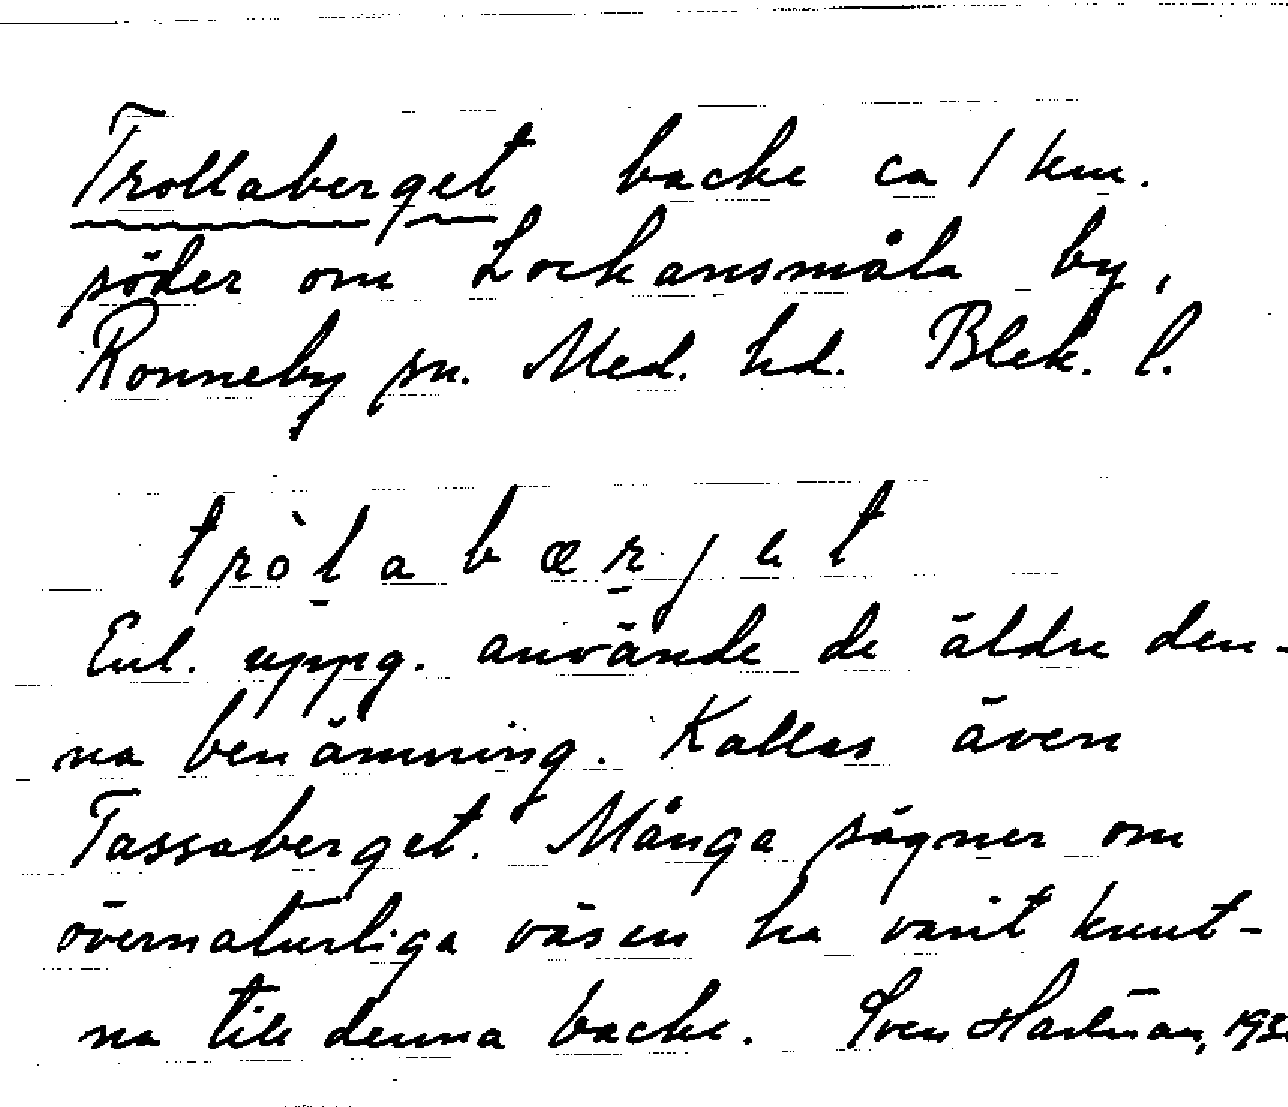 Trollaberget backe ca 1 km.
söder om Lockansmåla by,
Ronneby sn. Med. hd. Blek. l.
tròḷabæṛjet
Enl. uppg. använde de äldre den-
na benämning. Kallas även
Tassaberget. Många sägner om
övernaturliga väsen ha varit knut-
na till denna backe. Sven Hartman,